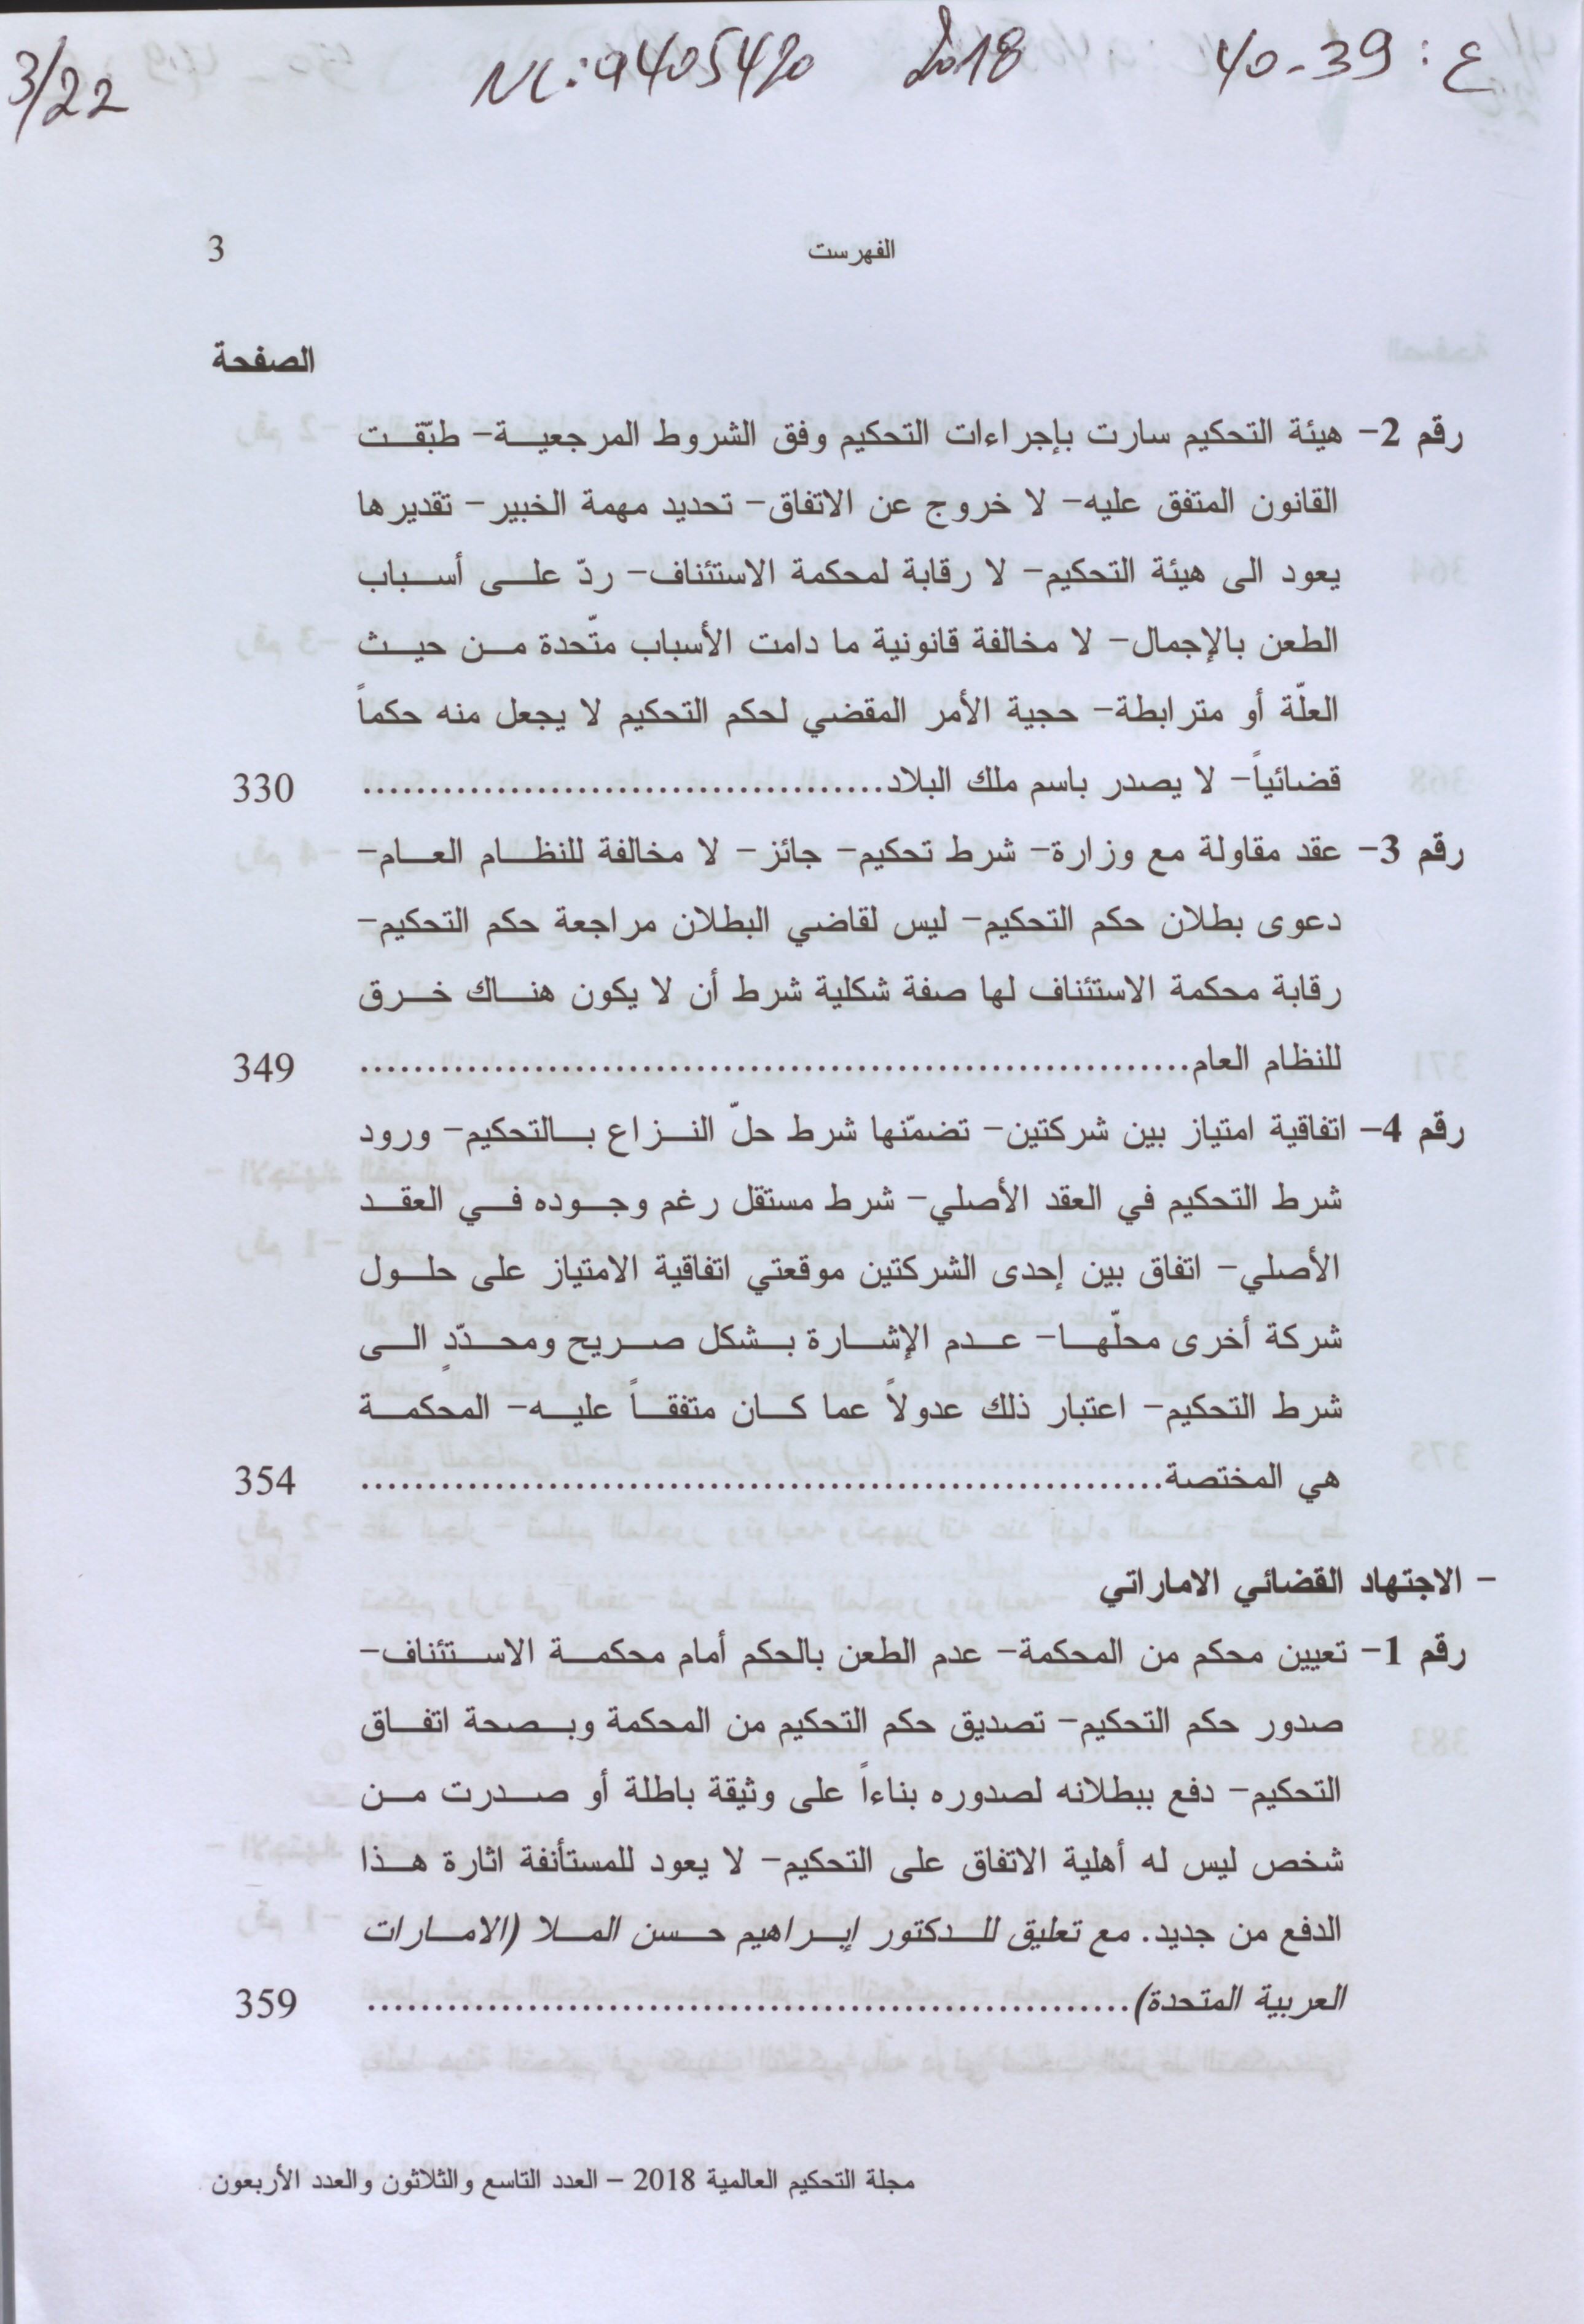 ع : 39-40 2018 NL:9405420 3/22
الفهرست 3
الصفحة
رقم 2- هيئة التحكيم سارت بإجراءات التحكيم وفق الشروط المرجعية- طبّقت
القانون المتفق عليه- لا خروج عن الاتفاق- تحديد مهمة الخبير- تقديرها
يعود الى هيئة التحكيم- لا رقابة لمحكمة الاستئناف- ردّ على أسباب
الطعن بالإجمال- لا مخالفة قانونية ما دامت الأسباب متّحدة من حيث
العلّة أو مترابطة- حجية الأمر المقضي لحكم التحكيم لا يجعل منه حكماً
قضائياً- لا يصدر باسم ملك البلاد....................................... 330
رقم 3- عقد مقاولة مع وزارة- شرط تحكيم- جائز- لا مخالفة للنظام العام-
دعوى بطلان حكم التحكيم- ليس لقاضي البطلان مراجعة حكم التحكيم-
رقابة محكمة الاستئناف لها صفة شكلية شرط أن لا يكون هناك خرق
للنظام العام.............................................................. 349
رقم 4- اتفاقية امتياز بين شركتين- تضمّنها شرط حلّ النزاع بالتحكيم- ورود
شرط التحكيم في العقد الأصلي- شرط مستقل رغم وجوده في العقد
الأصلي- اتفاق بين إحدى الشركتين موقعتي اتفاقية الامتياز على حلول
شركة أخرى محلّها- عدم الإشارة بشكل صريح ومحدّدٍ الى
شرط التحكيم- اعتبار ذلك عدولاً عما كان متفقاً عليه- المحكمة
هي المختصة............................................................ 354
- الاجتهاد القضائي الاماراتي
رقم 1- تعيين محكم من المحكمة- عدم الطعن بالحكم أمام محكمة الاستئناف-
صدور حكم التحكيم- تصديق حكم التحكيم من المحكمة وبصحة اتفاق
التحكيم- دفع ببطلانه لصدوره بناءاً على وثيقة باطلة أو صدرت من
شخص ليس له أهلية الاتفاق على التحكيم- لا يعود للمستأنفة اثارة هذا
الدفع من جديد. مع تعليق للدكتور إبراهيم حسن الملا (الامارات
العربية المتحدة)......................................................... 359
مجلة التحكيم العالمية 2018 - العدد التاسع والثلاثون والعدد الأربعون